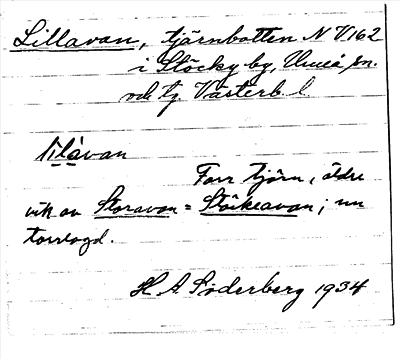 Lillavan, tjärnbotten N V.162
i Stöcky by, Umeå sn.
och tg. Västerb. l.
lìlàvan
Förr tjärn, äldre
vik av Storavan = Stöckeavan; nu
torrlagd.
H. A. Söderberg 1934